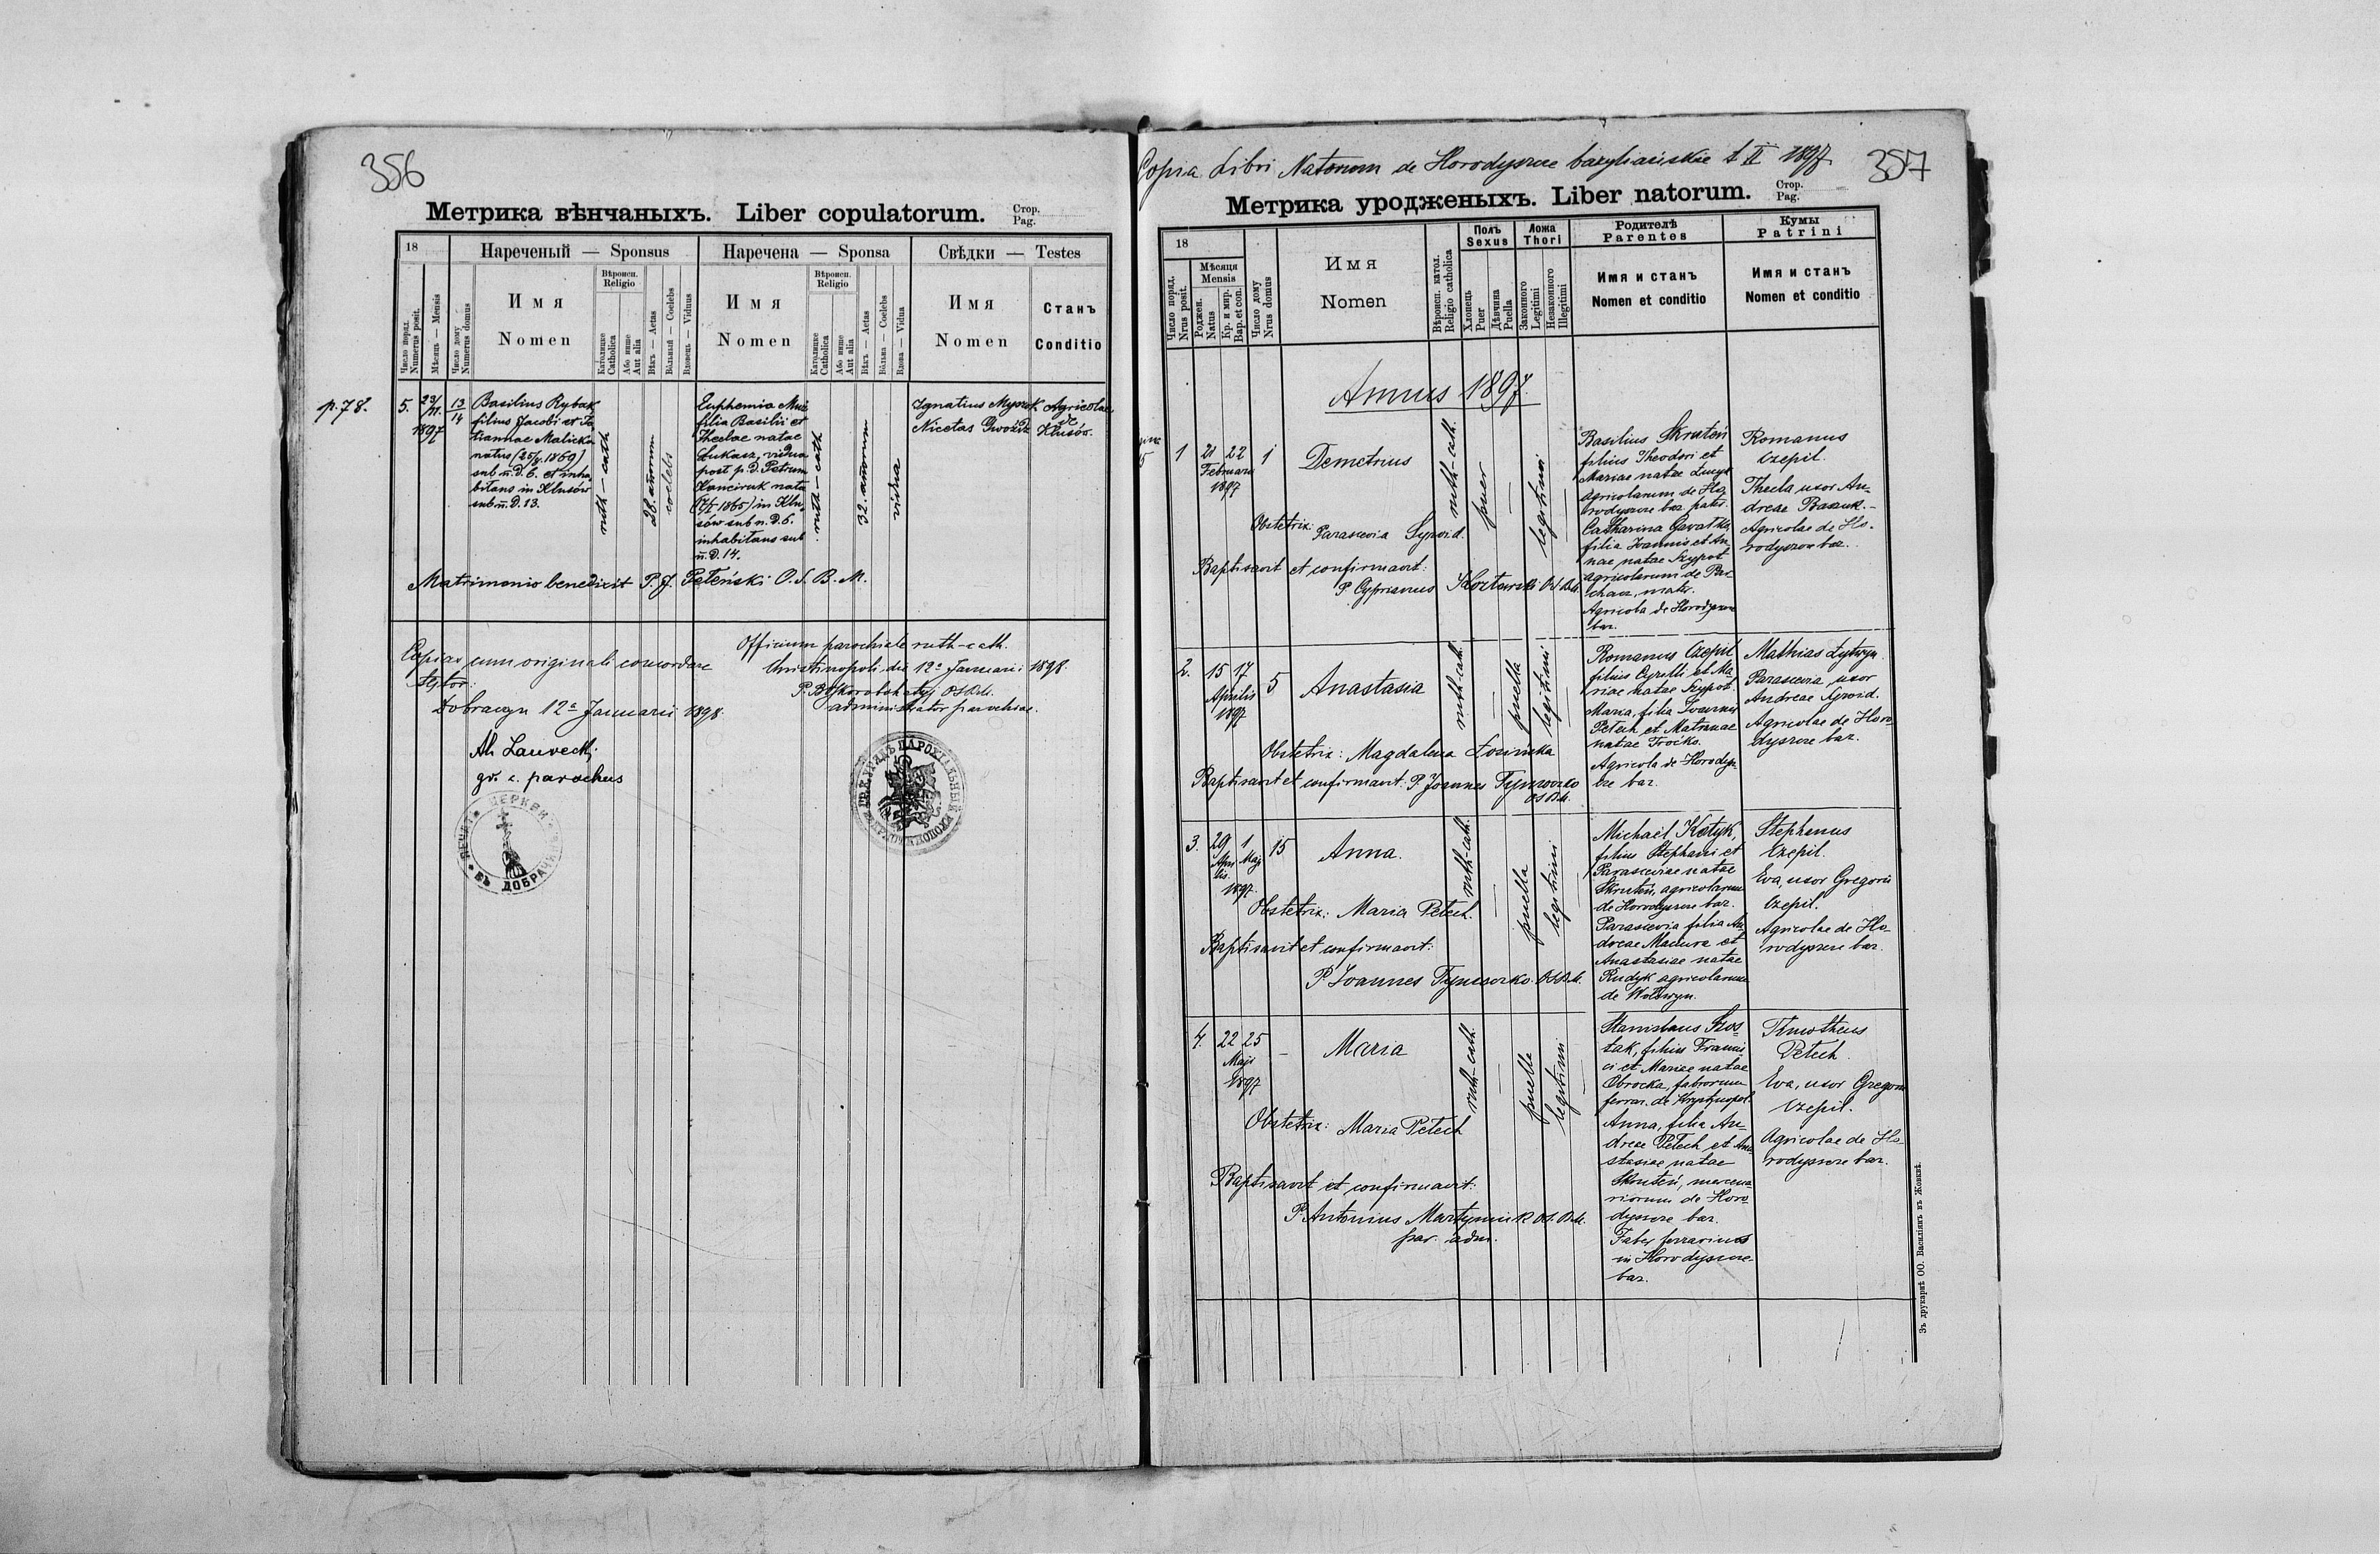 356
Метрика вѣнчаныхъ. Liber copulatorum.
Стор.
Pag.
18
Нареченый — Sponsus
Наречена — Sponsa
Свѣдки — Testes
Число поряд.
Numerus posit.
Мѣсяць — Mensis
Число дому
Numerus domus
Имя
Nomen
Вѣроисп.
Religio
Католицке
Catholica
Або инше
Aut alia
Вѣкъ — Aetas
Вôльный — Coelebs
Вдовець — Viduus
Имя
Nomen
Вѣроисп.
Religio
Католицке
Catholica
Або инше
Aut alia
Вѣкъ — Aetas
Вôльна — Coelebs
Вдова — Vidua
Имя
Nomen
Станъ
Conditio
p. 78.
5.
23/
1897
13
14
Basilius Rybak
filius Jacobi et Ta
tiannae Malicka
natus (25/ 1869)
sub n. D. 6. et inha
bitans in Klusów
sub n. D. 13.
ruth-cath
28. annorum
coelebs
Euphemia
filia Basilii et
Theclae natae
Łukasz, vidua
post p. D. Petrum
Kanciruk nata
1865) in Klu
sów sub n. D. 6.
inhabitans sub
n. D. 14.
ruth-cath
32. annorum
vidua
Ignatius Myszak
Nicetas Gwoźdź
Agricolae
de
Klusów.
Matrimonio benedixit P. J. Feteński O. S. B. M.
Copiae cum originali concordare
testor:
Dobraczyn 12a Januarii 1898.
Al. Lawrecki
gr. c. parochus
Officium parochiale ruth-cath.
Christinopoli die 12a Januarii 1898.
P. B. OSBM.
administrator parochiae.
ПЕЧАТЬ ЦЕРКВИ
ВЪ ДОБРАЧИНѢ
ГР. К. УРЯДЪ ПАРОХІАЛЬНЫЙ
Copia Libri Natorum de Horodyszcze bazyliańskie t II 1897.
357
Метрика уродженыхъ. Liber natorum.
Стор.
Pag.
18
Число поряд.
Nrus posit.
Мѣсяця
Mensis
Роджен.
Natus
Кр. и мир.
Bap. et con.
Число дому
Nrus domus
Имя
Nomen
Вѣроисп. катол.
Religio catholica
Полъ
Sexus
Хлопець
Puer
Дѣвчина
Puella
Ложа
Thori
Законного
Legitimi
Незаконного
Illegitimi
Родителѣ
Parentes
Имя и станъ
Nomen et conditio
Кумы
Patrini
Имя и станъ
Nomen et conditio
Annus 1897.
1
21 22
Februarii
1897
1
Demetrius
ruth-cath.
puer
legitimi
Basilius Skruteń
filius Theodori et
Mariae natae
agricolarum de Ho
rodyszcze baz. patr.
Catharina
filia Joannis et An
nae natae Szypot
agricolarum de Par
chacz, matr.
Agricola de Horodyszcze
baz.
Romanus
Czepil.
Thecla uxor An-
dreae
Agricolae de Ho-
rodyszcze baz.
Obstetrix: Parascevia Syroid.
Baptisavit et confirmavit:
P. Cyprianus Kozłowski OSBM.
2.
15 17
Aprilis
1897
5
Anastasia
ruth-cath.
puella
legitimi
Romanus Czepil
filius Cyrilli et Ma
riae natae Szypot
Maria, filia Joannis
Petech et Matronae
natae Troćko.
Agricola de Horodysz
cze baz.
Mathias Łytwyn.
Parascevia, uxor
Andreae Syroid.
Agricolae de Horo
dyszcze baz.
Obstetrix: Magdalena Łozińska
Baptisavit et confirmavit: P. Joannes Tymoczko
OSBM.
3.
29 1
Apri Maj
lis.
1897.
15
Anna.
ruth-cath.
puella
legitimi
Michaël Kotyk,
filius Stephani et
Parasceviae natae
Skruteń, agricolarum
de Horodyszcze baz.
Parascevia filia An
dreae Machura et
Anastasiae natae
Rudyk agricolarum
de Wołswyn.
Stephanus
Czepil.
Eva, uxor Gregorii
Czepil.
Agricolae de Ho-
rodyszcze baz.
Obstetrix: Maria Petech.
Baptisavit et confirmavit:
P. Joannes Tymoczko OSBM.
4.
22 25
Maji
1897
-
Maria
ruth-cath.
puella
legitimi
Stanislaus Szos
tak, filius Francis
ci et Mariae natae
Obrocka, fabrorum
ferrar. de Krystynopol.
Anna, filia An-
dreae Petech et Ana
stasiae natae
Skruteń, mercena
riorum de Horo
dyszcze baz.
Faber ferrarius
in Horodyszcze
baz.
Timotheus
Petech.
Eva, uxor Gregorii
Czepil.
Agricolae de Ho-
rodyszcze baz.
Obstetrix: Maria Petech
Baptisavit et confirmavit:
P. Antonius Martyniuk OSBM.
par. adm.
Зъ друкарнѣ ОО. Василіянъ въ Жовквѣ.